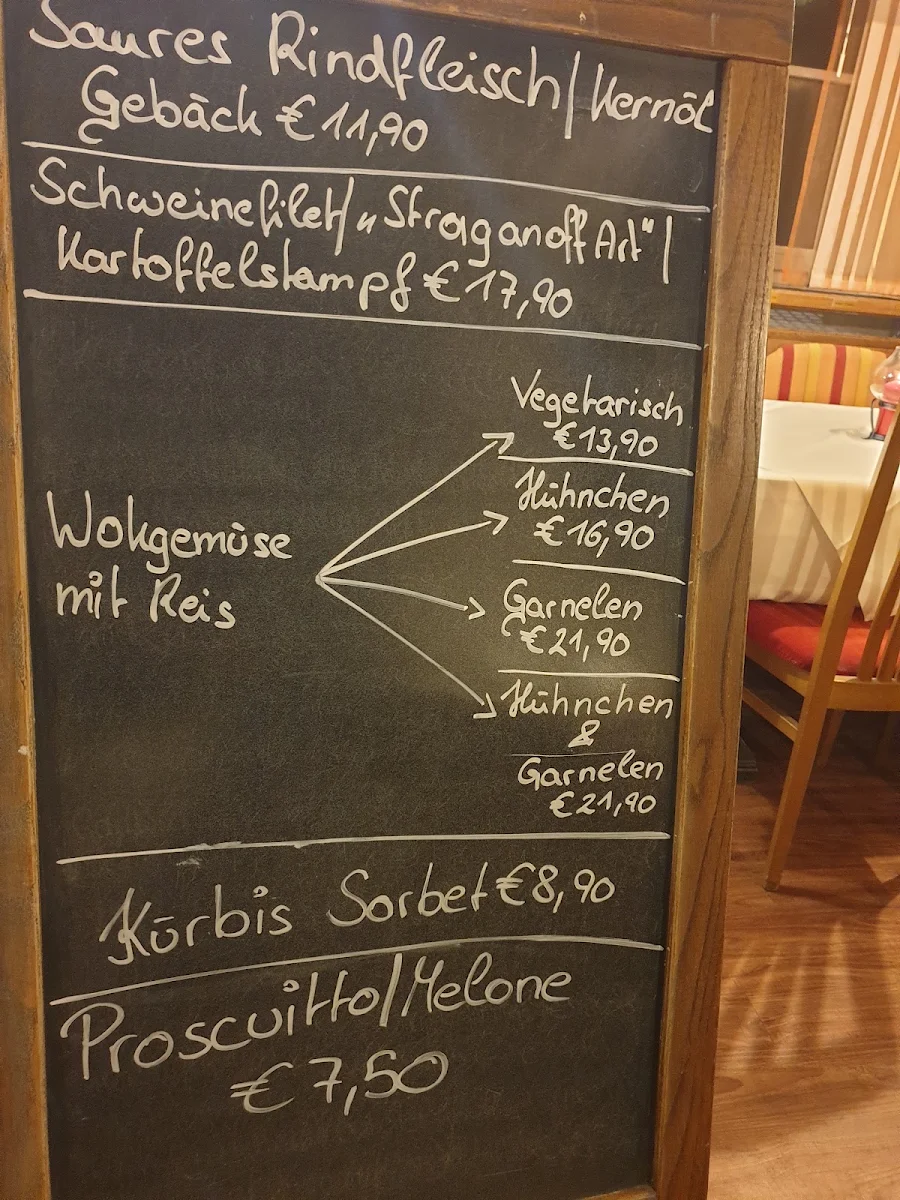 Saures Rindfleisch/Kernöl
Gebäck €11,90
Schweinefilet/„Straganoff Art"/
Kartoffelstampf €17,90
Wokgemüse
mit Reis
Vegetarisch
€13,90
Hühnchen
€16,90
Garnelen
€21,90
Hühnchen
&
Garnelen
€21,90
Kürbis Sorbet €8,90
Proscuitto/Melone
€7,50